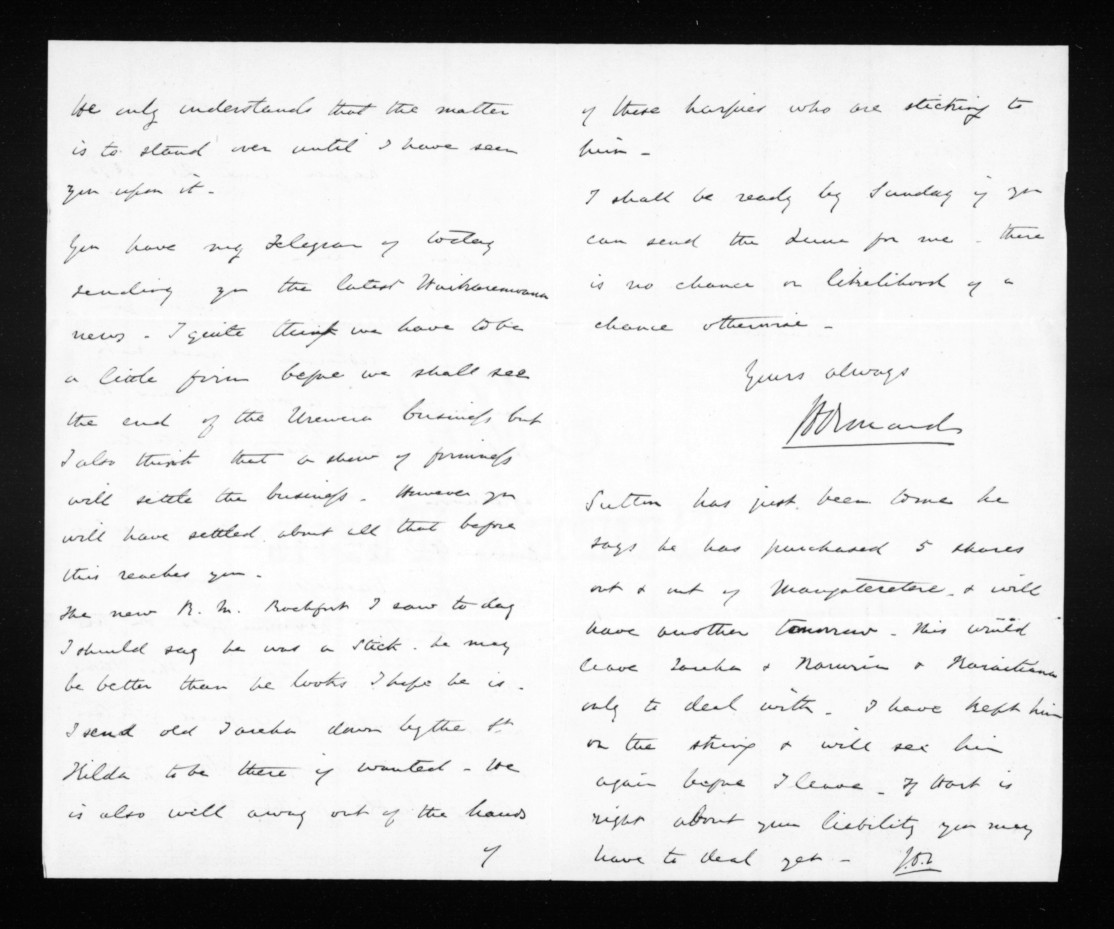 He only understands that the matter
is to stand over until I have seen
you upon it -
You have my Telegram of today
sending you the latest Waikaremoana
news - I quite think we have to be
a little firm before we shall see
the end of the Urewera business but
I also think that a show of firmness
will settle the business - However you
will have settled about all that before
this reaches you -
The new R. M. Rochfort I saw to day
I should say he was a stick - he may
be better than he looks I hope he is -
I send old Tareha down by the St.
Kilda to be there if wanted - He
is also well away out of the hands
of
of these harpies who are sticking to
him -
I shall be ready by Sunday if you
can send the Luna for me - there
is no chance or likelihood of a
chance otherwise -
Yours always
JDOrmond
Sutton has just been to me he
says he has purchased 5 shares
out & out of Mangateretere & will
have another tomorrow - this would
leave Tareha & Karauria & Karaitiana
only to deal with - I have kept him
on the string & will see him
again before I leave - If Hart is
right about your liability you may
have to deal yet - J.D.O